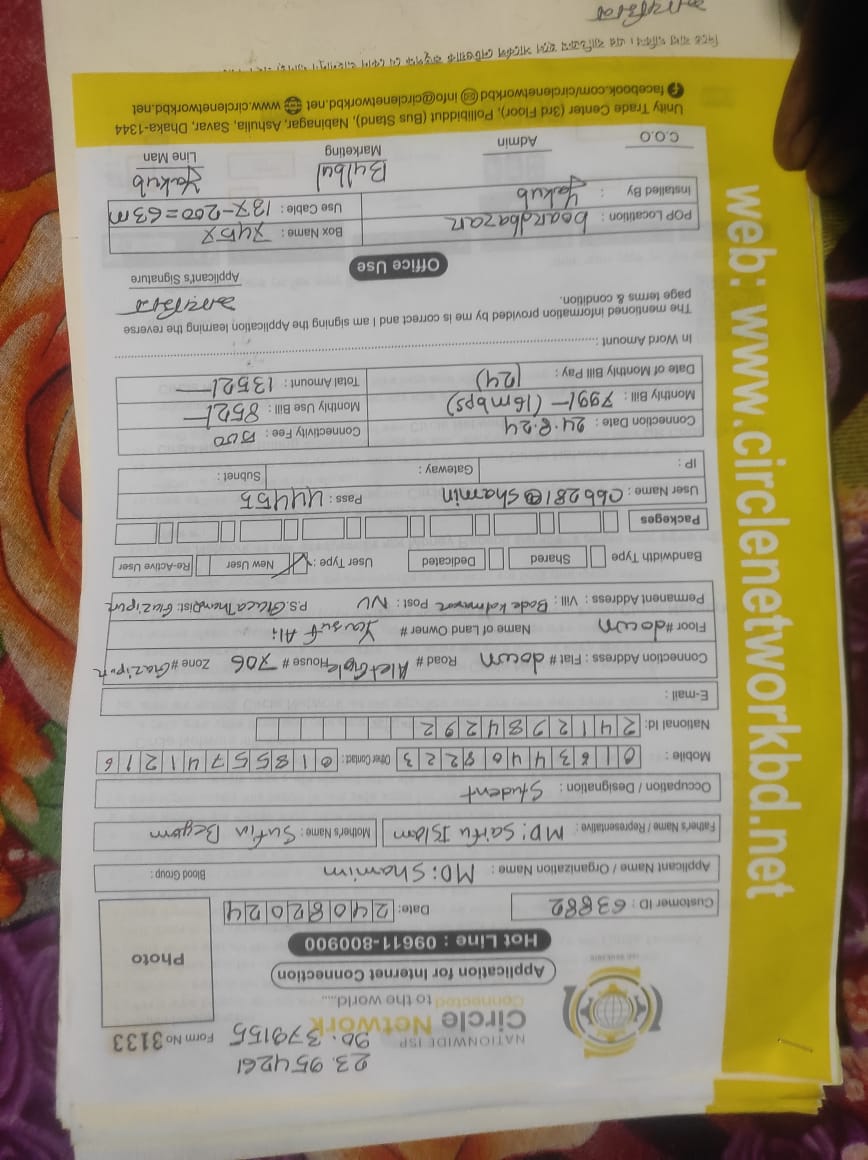 23.954261
90.379155
NATIONWIDE ISP
Circle Network
Connected to the world.....
Form No 3133
Application for Internet Connection
Hot Line : 09611-800900
Photo
Customer ID : 63882 Date: 24082024
Applicant Name / Organization Name : MD: Shamim Blood Group :
Father's Name / Representative : MD: Saifu Islam Mother's Name : Sufia Begom
Occupation / Designation : Student
Mobile : 01634408223 Other Contact : 01855741216
National Id: 2412984292
E-mail :
Connection Address : Flat # down Road # House # 706 Zone # Gazipur
Floor # down Name of Land Owner # Yousuf Ali
Permanent Address : Vill : Post : NU P.S. Dist: Gazipur
Bandwidth Type Shared Dedicated User Type : New User Re-Active User
Packeges
User Name : cbb281@shamim Pass : 44455
IP : Gateway : Subnet :
Connection Date : 24.8.24 Connectivity Fee : 500
Monthly Bill : 799/- (16mbps) Monthly Use Bill : 852/-
Date of Monthly Bill Pay : (24) Total Amount : 1352/-
In Word Amount :
The mentioned information provided by me is correct and I am signing the Application learning the reverse
page terms & condition.
Applicant's Signature
Office Use
POP Locatition : boardbazar Box Name : 745X
Installed By : Yakub Use Cable : 137-200=63m
Bulbul Yakub
C.O.O Admin Marketing Line Man
Unity Trade Center (3rd Floor), Pollibiddut (Bus Stand), Nabinagar, Ashulia, Savar, Dhaka-1344
facebook.com/circlenetworkbd info@circlenetworkbd.net www.circlenetworkbd.net
web: www.circlenetworkbd.net